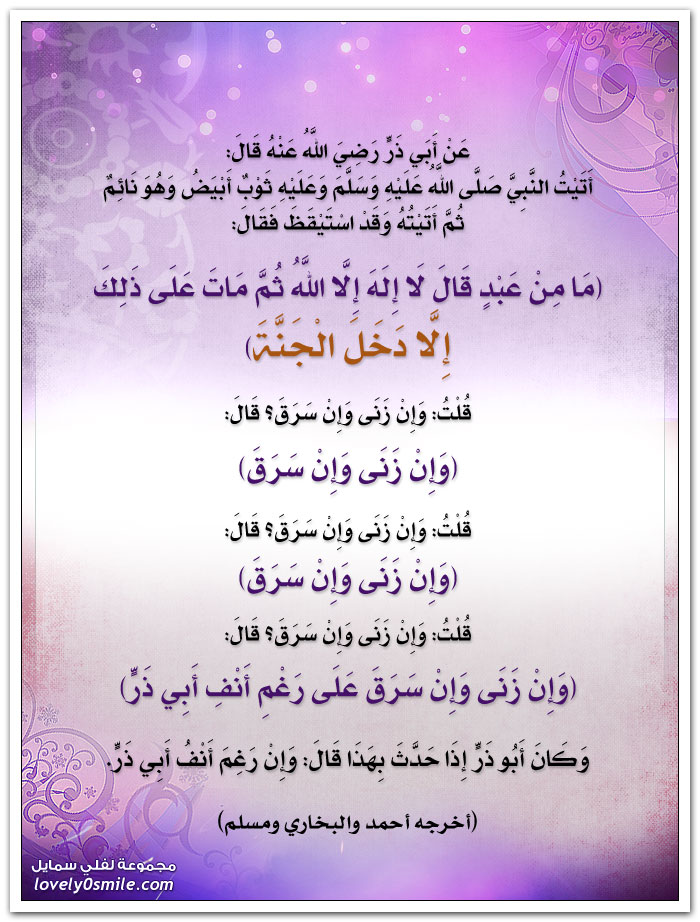 عَنْ أَبِي ذَرٍّ رَضِيَ اللَّهُ عَنْهُ قَالَ:
أَتَيْتُ النَّبِيَّ صَلَّى اللَّهُ عَلَيْهِ وَسَلَّمَ وَعَلَيْهِ ثَوْبٌ أَبْيَضُ وَهُوَ نَائِمٌ
ثُمَّ أَتَيْتُهُ وَقَدْ اسْتَيْقَظَ فَقَالَ:
(مَا مِنْ عَبْدٍ قَالَ لَا إِلَهَ إِلَّا اللَّهُ ثُمَّ مَاتَ عَلَى ذَلِكَ
إِلَّا دَخَلَ الْجَنَّةَ)
قُلْتُ: وَإِنْ زَنَى وَإِنْ سَرَقَ؟ قَالَ:
(وَإِنْ زَنَى وَإِنْ سَرَقَ)
قُلْتُ: وَإِنْ زَنَى وَإِنْ سَرَقَ؟ قَالَ:
(وَإِنْ زَنَى وَإِنْ سَرَقَ)
قُلْتُ: وَإِنْ زَنَى وَإِنْ سَرَقَ؟ قَالَ:
(وَإِنْ زَنَى وَإِنْ سَرَقَ عَلَى رَغْمِ أَنْفِ أَبِي ذَرٍّ)
وَكَانَ أَبُو ذَرٍّ إِذَا حَدَّثَ بِهَذَا قَالَ: وَإِنْ رَغِمَ أَنْفُ أَبِي ذَرٍّ.
(أخرجه أحمد والبخاري ومسلم)
مجموعة لفلي سمايل
lovely0smile.com